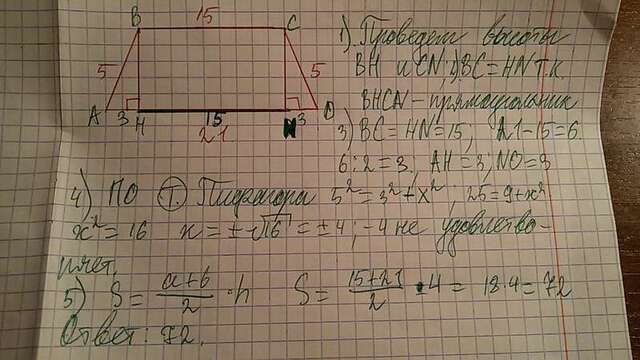 B 15 C
5 5
A 3 H 15 N 3 D
21
1) Проведем высоты
BH и CN; 2) BC = HN т.к.
BHCN - прямоугольник
3) BC = HN = 15, 21-15=6.
6:2=3. AH=3; ND=3
4) ПО Т. Пифагора 5²=3²+x²; 25=9+x²
x²=16 x=±√16=±4; -4 не удовлетво-
ряет.
5) S= a+b/2 · h S= 15+21/2 · 4 = 18·4=72
Ответ: 72.